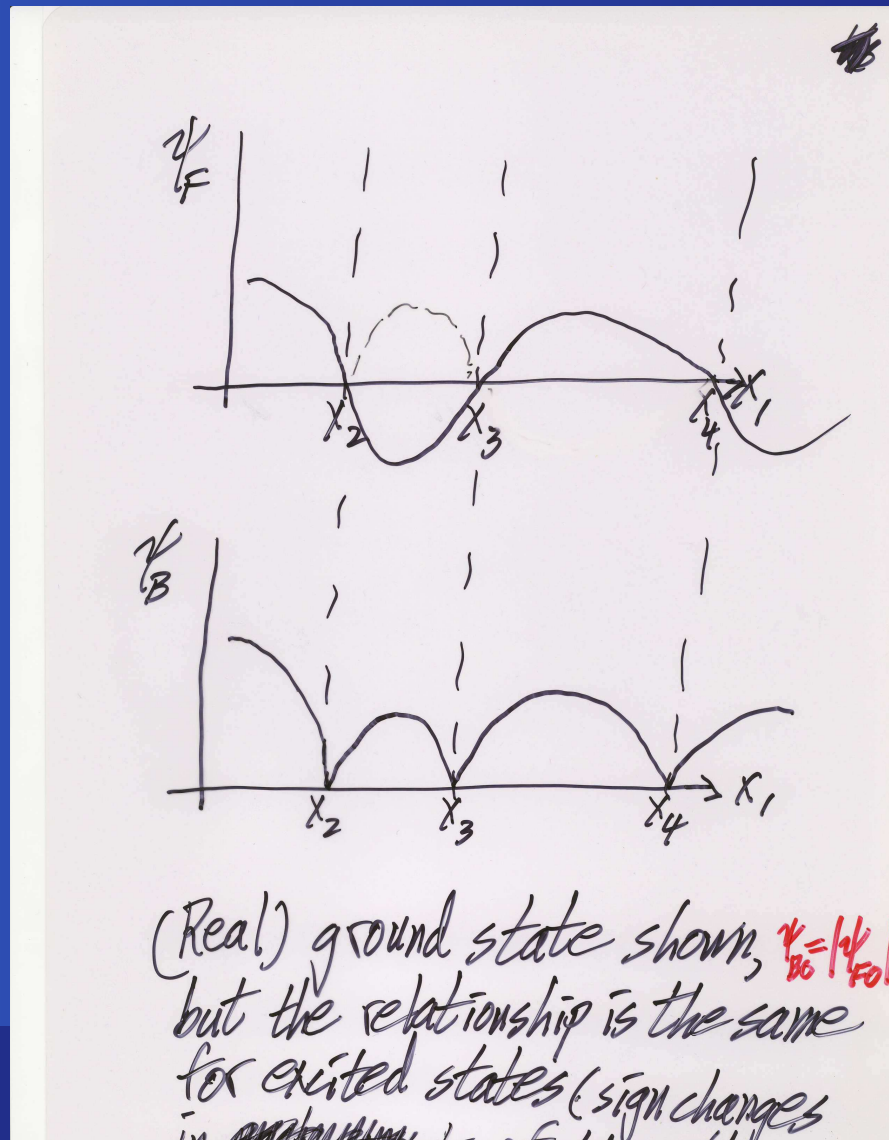 ψ_F
X_2 X_3 X_4 X_1
ψ_B
X_2 X_3 X_4 X_1
(Real) ground state shown, ψ_B0 = |ψ_F0|
but the relationship is the same
for excited states (sign changes
in